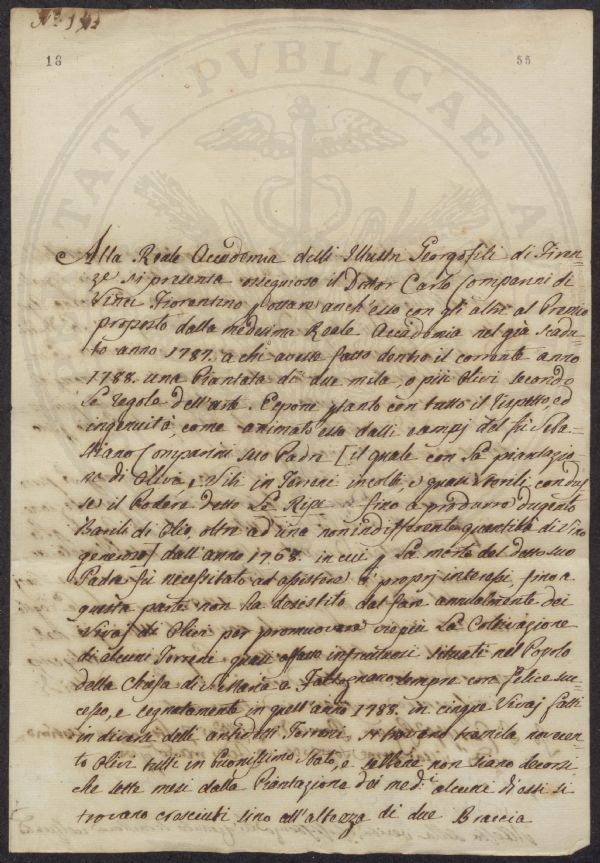 N.° 141
18
55
PUBLICAE
Alla Reale Accademia delli Illustri Georgofili di Firen=
ze si presenta ossequioso il Dottor Carlo Comparini di
Vinci Fiorentino p ottare anch'esso con gli altri al Premio
proposto dalla medesima Reale Accademia nel già scadu=
to anno 1787. a chi avesse fatto dentro il corrente anno
1788. una Piantata di due mila, o più Olivi secondo
le regole dell'arte. Espone p tanto con tutto il rispetto, ed
ingenuità, come animato esso dalli esempj del fù Seba=
stiano Comparini suo Padre [il quale con la piantagio=
ne di Olivi e Viti in Terreni incolti, e quasi sterili, condus
se il Podere detto Le Ripe fino a produrre dugento
Barili di Olio, oltre ad una non indifferente quantità di Vino
generoso] dall'anno 1768. in cui p la morte del detto suo
Padre fù necessitato ad assistere a' proprj interessi, fino a
questa parte non ha desistito dal fare annualmente dei
Vivaj di Olivi per promuovere viepiù la Coltivazione
di alcuni Terreni quasi affatto infruttuosi situati nel Popolo
della Chiesa di S. Maria a Faltognano sempre con felice suc=
cesso, e segnatamente in quest'anno 1788. in cinque Vivaj fatti
in diversi delli antidetti Terreni si trovano tremila novecen=
to Olivi tutti in buonissimo stato, e sebbene non siano decorsi
che sette mesi dalla Piantazione dei med.i alcuni di essi si
trovano cresciuti sino all'altezza di due Braccia